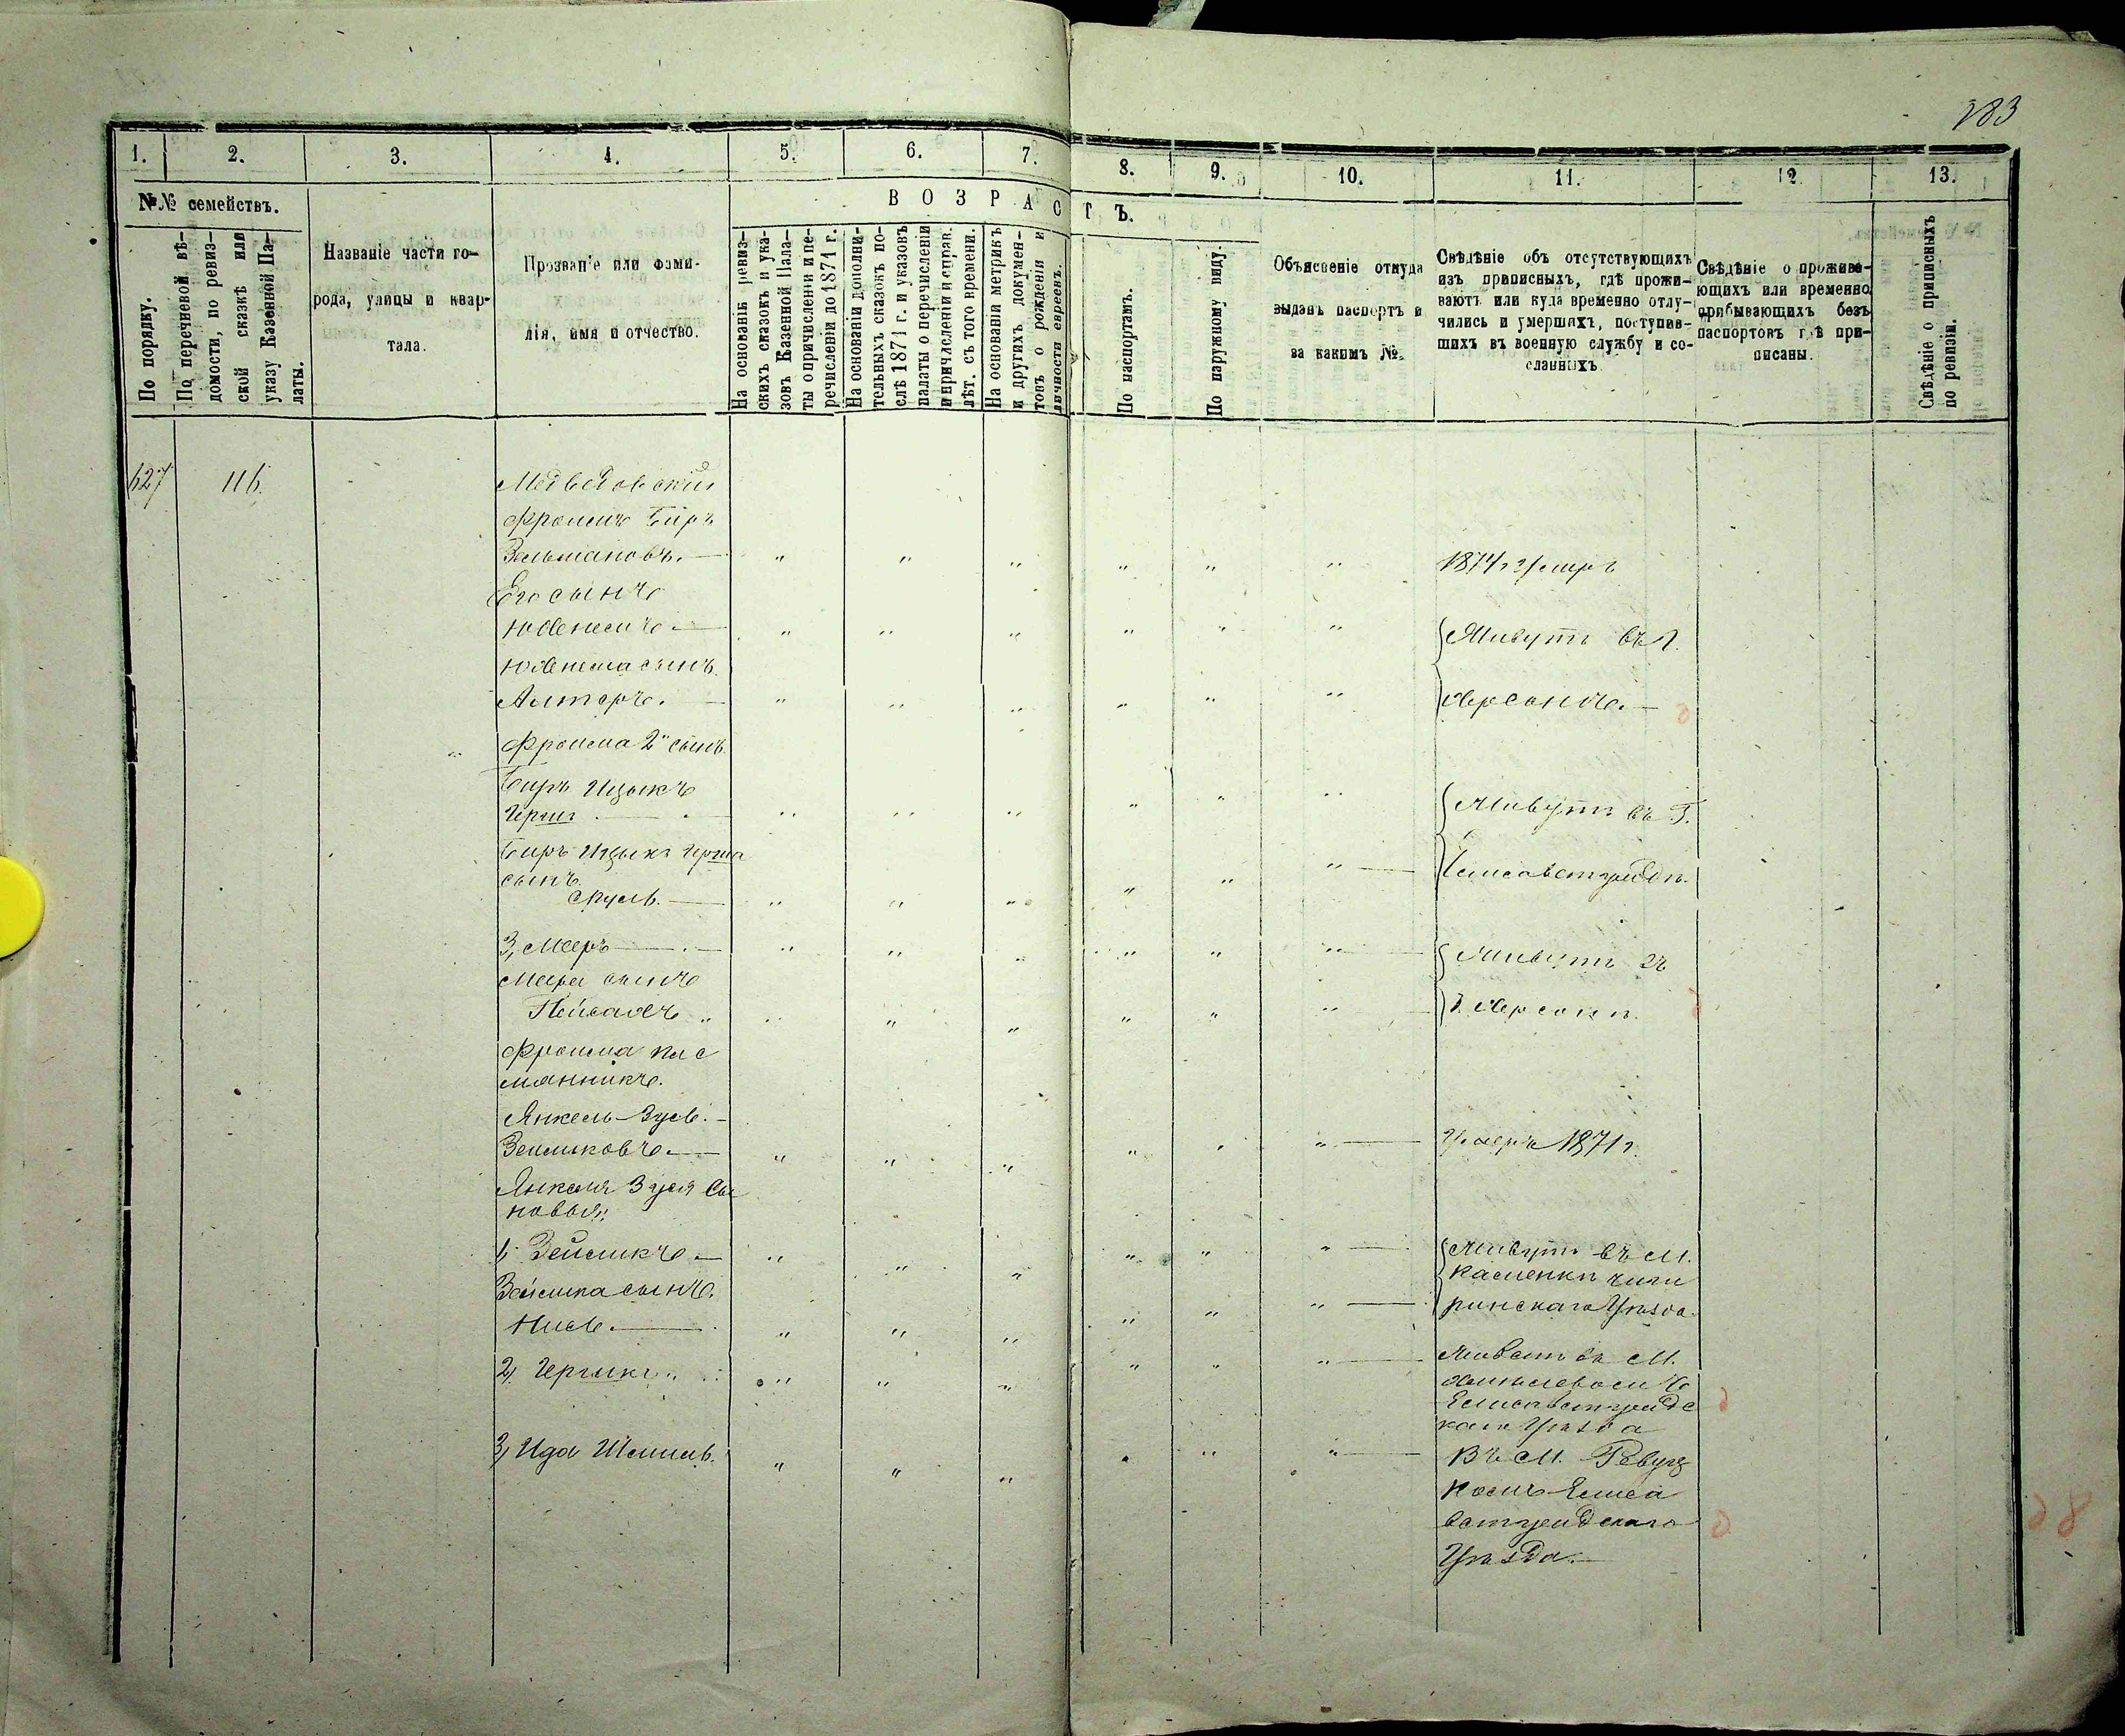 383
1. 2. 3. 4. 5. 6. 7. 8. 9. 10. 11. 12. 13.
№№ семействъ.
По порядку.
По перечневой вѣ-
домости, по ревиз-
ской сказкѣ или
указу Казенной Па-
латы.
Названіе части го-
рода, улицы и квар-
тала.
Прозваніе или фами-
лія, имя и отчество.
ВОЗРАСТЪ.
На основаніи ревиз-
скихъ сказокъ и ука-
зовъ Казенной Пала-
ты о причисленіи и пе-
речисленіи до 1871 г.
На основаніи дополни-
тельныхъ сказокъ по-
слѣ 1871 г. и указовъ
палаты о перечисленіи
и причисленіи и справ.
лѣт. съ того времени.
На основаніи метрикъ
и другихъ докумен-
товъ о рожденіи и
личности евреевъ.
По паспортамъ.
По наружному виду.
Объясненіе откуда
выданъ паспортъ и
за какимъ №.
Свѣдѣніе объ отсутствующихъ
изъ приписныхъ, гдѣ прожи-
ваютъ или куда временно отлу-
чились и умершихъ, поступив-
шихъ въ военную службу и со-
сланныхъ.
Свѣдѣніе о прожива-
ющихъ или временно
прибывающихъ безъ
паспортовъ гдѣ при-
писаны.
Свѣдѣніе о приписныхъ
по ревизіи.
627 116.
Медведовскій
Фроимъ Беръ
Зельмановъ. 1874 г. Умеръ
Его сынъ
Юхенемъ Живутъ въ г.
Юхенема сынъ
Алтеръ. Херсонѣ.
Фроима 2й сынъ
Беръ Ицыкъ
Гершъ Живутъ въ г.
Беръ Ицыка Герша
сынъ Елисаветградѣ.
Сруль.
3, Мееръ Живутъ въ
Меера сынъ
Пейсахъ г. Херсонѣ.
Фроима пле
мянникъ.
Янкель-Зусь
Зейликовъ Умеръ 1871 г.
Янкеля Зуся сы
новья:
1, Зейликъ Живутъ въ М.
Каменкѣ Чиги
Зейлика сынъ
ринскаго Уѣзда.
Нисъ.
2, Гершко Живетъ въ М.
Елисаветградс
каго Уѣзда
3, Ида Шлиома. Въ М. Ровуц
комъ Елиса
ветградскаго
Уѣзда.